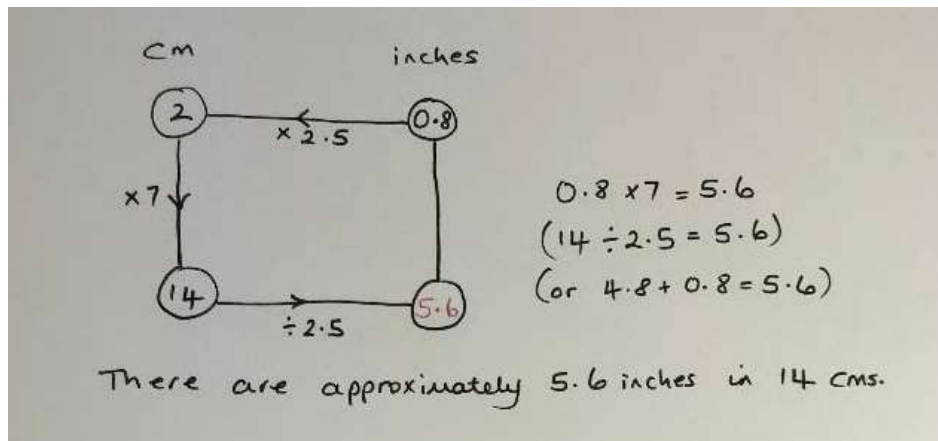 cm inches
2 0.8
× 2.5
×7 0.8 × 7 = 5.6
(14 ÷ 2.5 = 5.6)
14 5.6 (or 4.8 + 0.8 = 5.6)
÷ 2.5
There are approximately 5.6 inches in 14 cms.